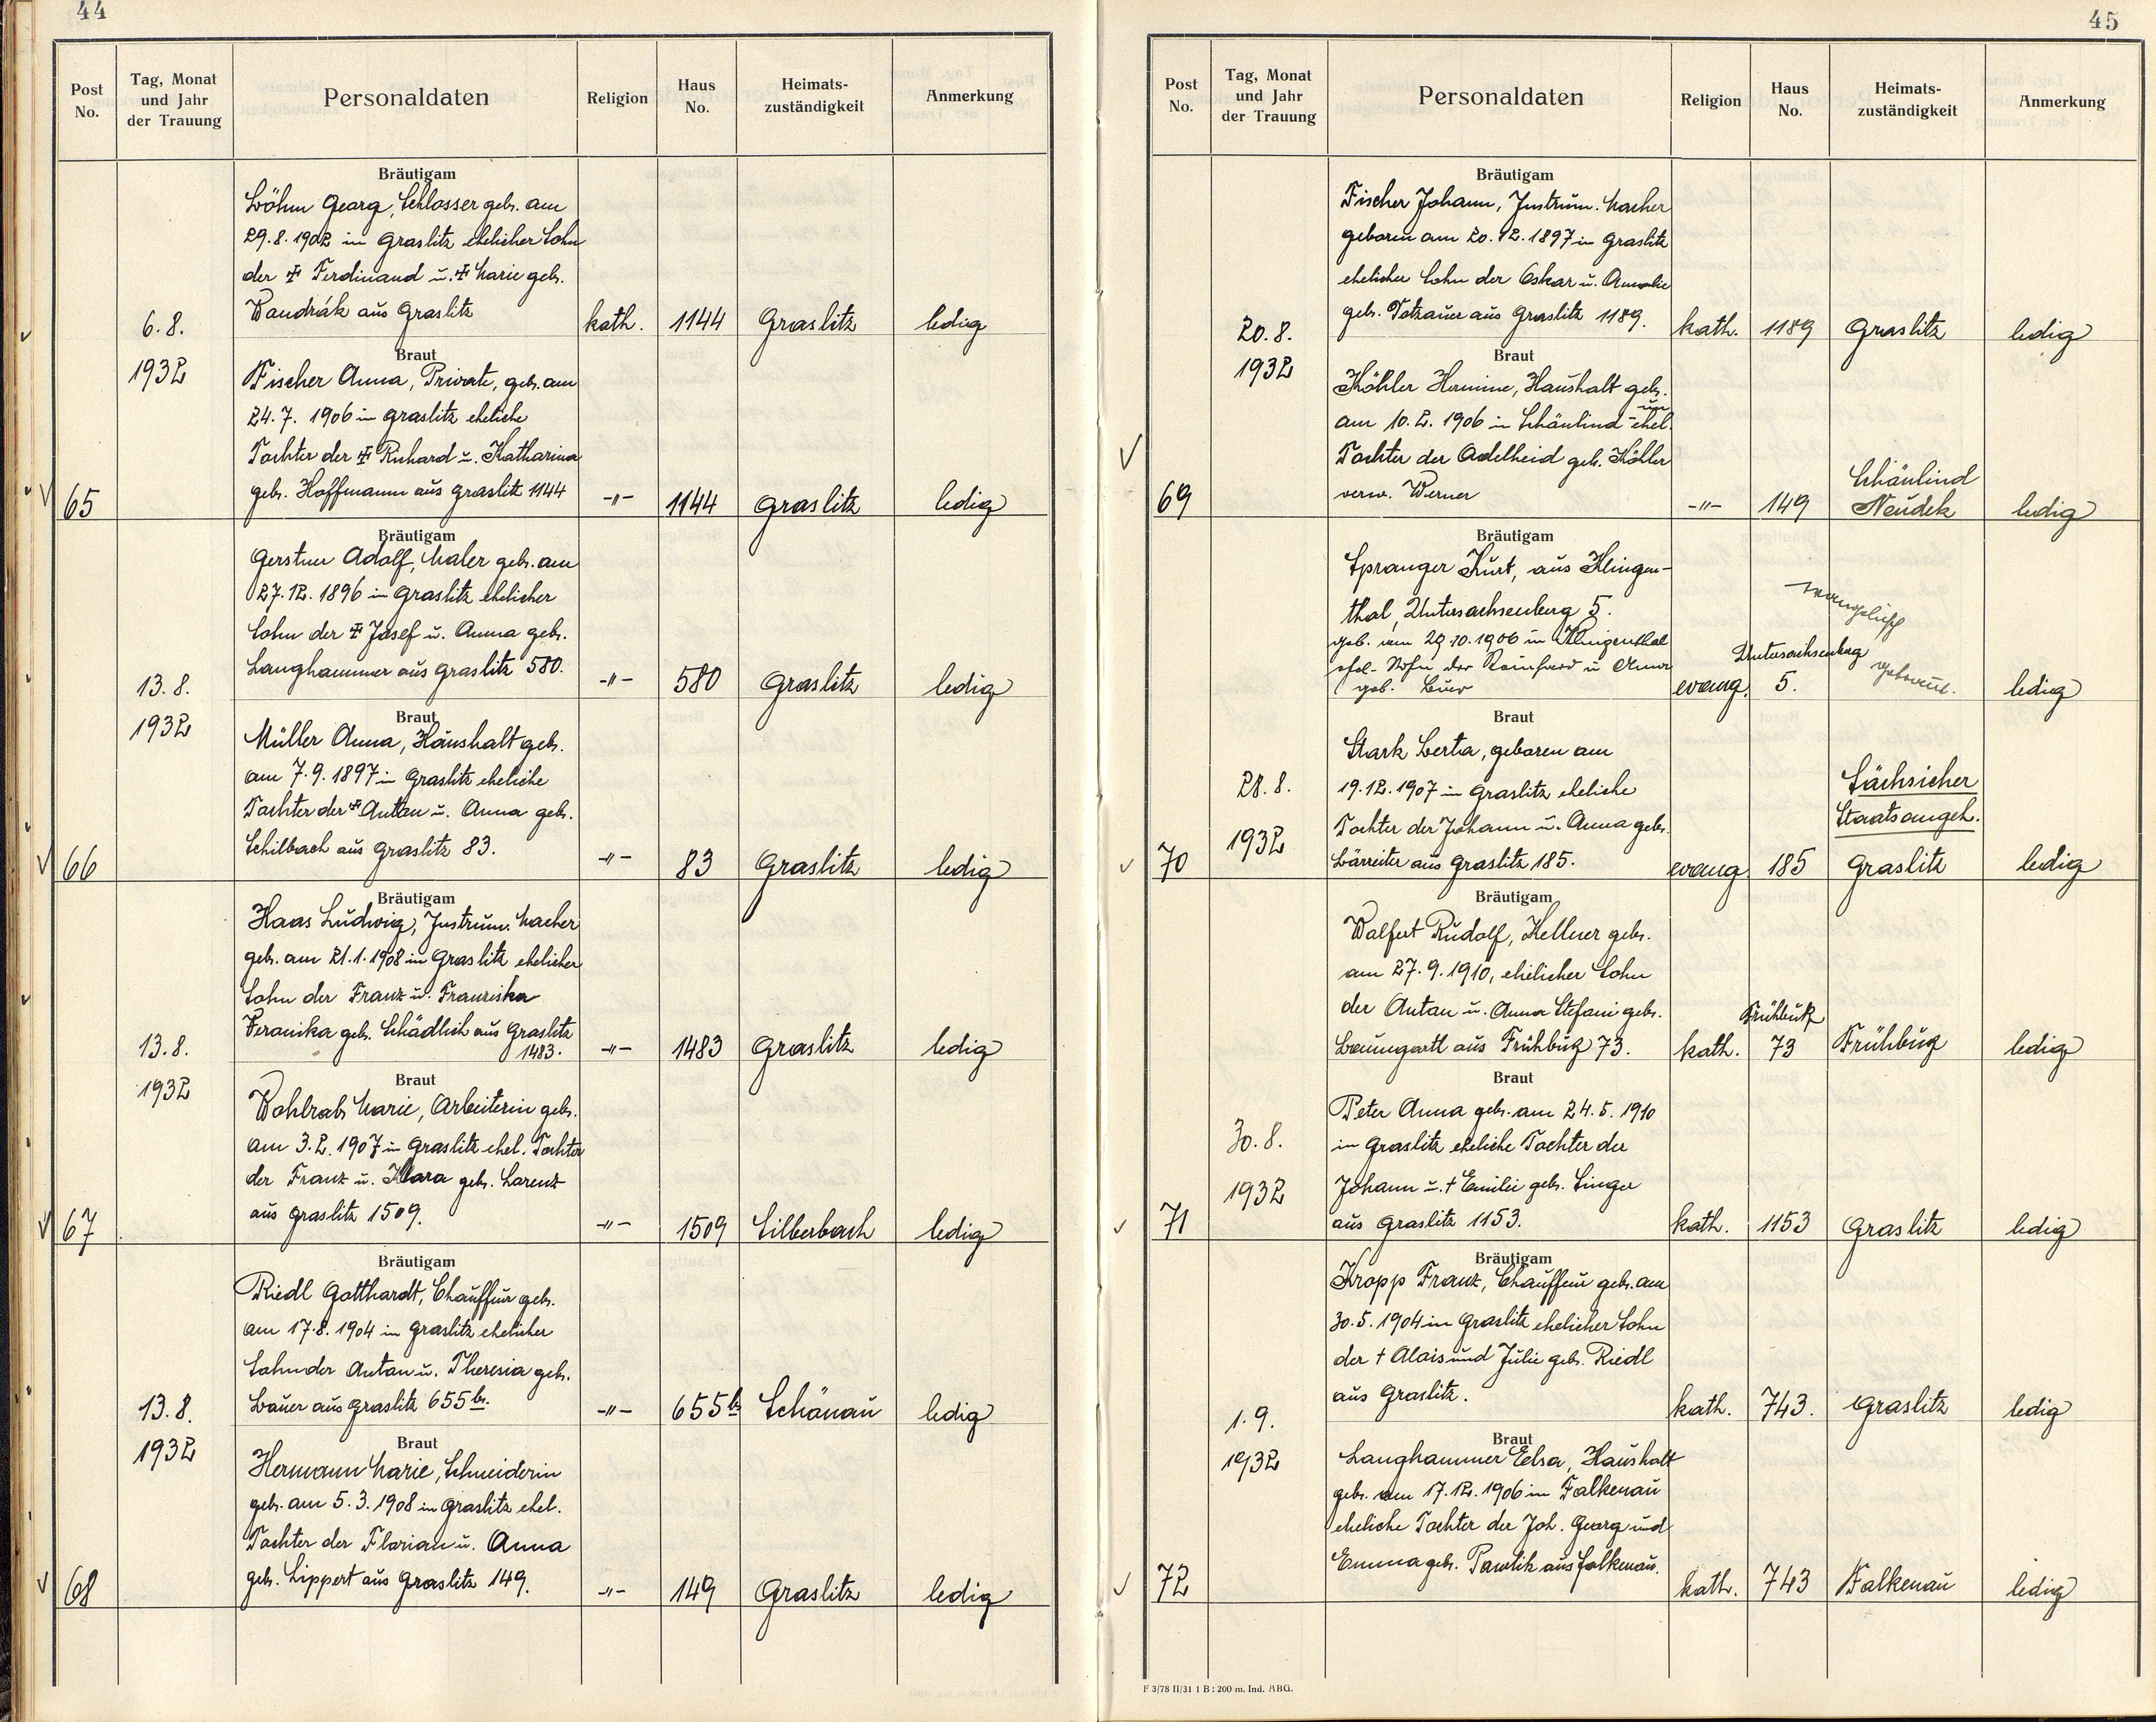 44
Post No.
Tag, Monat und Jahr der Trauung
Personaldaten
Religion
Haus No.
Heimats-zuständigkeit
Anmerkung
Bräutigam
Böhm Georg, Schlosser geb. am
29.8.1902 in Graslitz ehelicher Sohn
der ✝ Ferdinand u. ✝ Marie geb.
Wandrák aus Graslitz
kath. 1144 Graslitz ledig
6.8.
1932
Braut
Fischer Anna, Private, geb. am
24.7. 1906 in Graslitz eheliche
Tochter der ✝ Richard u. Katharina
geb. Hoffmann aus Graslitz 1144
65 -"- 1144 Graslitz ledig
Bräutigam
Gerstner Adolf, Maler geb. am
27.12.1896 in Graslitz ehelicher
Sohn der ✝ Josef u. Anna geb.
Langhammer aus Graslitz 580.
-"- 580 Graslitz ledig
13.8.
1932
Braut
Müller Anna, Haushalt geb.
am 7.9.1897 in Graslitz eheliche
Tochter der ✝ Anton u. Anna geb.
Schilbach aus Graslitz 83.
66 -"- 83 Graslitz ledig
Bräutigam
Haas Ludwig, Instrum. Macher
geb. am 21.1.1908 in Graslitz ehelicher
Sohn der Franz u. Franziska
Veronika geb. Schädlich aus Graslitz
1483.
-"- 1483 Graslitz ledig
13.8.
1932
Braut
Wohlrab Marie, Arbeiterin geb.
am 3.2.1907 in Graslitz ehel. Tochter
der Franz u. Klara geb. Lorenz
aus Graslitz 1509.
67 -"- 1509 Silberbach ledig
Bräutigam
Riedl Gotthardt, Chauffeur geb.
am 17.8.1904 in Graslitz ehelicher
Sohn der Anton u. Theresia geb.
Bauer aus Graslitz 655b.
-"- 655b Schönau ledig
13.8.
1932
Braut
Hermann Marie, Schneiderin
geb. am 5.3.1908 in Graslitz ehel.
Tochter der Florian u. Anna
geb. Lippert aus Graslitz 149.
68 -"- 149 Graslitz ledig
45
Post No.
Tag, Monat und Jahr der Trauung
Personaldaten
Religion
Haus No.
Heimats-zuständigkeit
Anmerkung
Bräutigam
Fischer Johann, Instrum. Macher
geboren am 20.12.1897 in Graslitz
ehelicher Sohn der Oskar u. Annalie
geb. Totzauer aus Graslitz 1189.
kath. 1189 Graslitz ledig
20.8.
1932
Braut
Köhler Hermine, Haushalt geb.
am 10.2.1906 in Schönlind un ehel.
Tochter der Adelheid geb. Köhler
verw. Werner
69 -"- 149 Schönlind Neudek ledig
Bräutigam
Spranger Kurt, aus Klingen-
thal, Untersachsenberg 5.
geb. am 29.10.1906 in Klingenthal
ehel. Sohn der Reinhard u Anna
geb.
evang. Untersachsenberg 5. evangelisch getraut. ledig
28.8.
1932
Braut
Stark Berta, geboren am
19.12.1907 in Graslitz eheliche
Tochter der Johann u. Anna geb.
Bärreiter aus Graslitz 185.
Sächsicher
Staatsangeh.
70 evang. 185 Graslitz ledig
Bräutigam
Walfert Rudolf, Kellner geb.
am 27.9.1910, ehelicher Sohn
der Anton u. Anna Stefani geb.
Baumgartl aus Frühbuß 73.
kath. Frühbuß 73 Frühbuß ledig
30.8.
1932
Braut
Peter Anna geb. am 24.5.1910
in Graslitz eheliche Tochter der
Johann u. † Emilie geb. Singer
aus Graslitz 1153.
71 kath. 1153 Graslitz ledig
Bräutigam
Kropp Franz, Chauffeur geb. am
30.5.1904 in Graslitz ehelicher Sohn
der † Alois und Julie geb. Riedl
aus Graslitz.
kath. 743. Graslitz ledig
1.9.
1932
Braut
Langhammer Elsa, Haushalt
geb. am 17.12.1906 in Falkenau
eheliche Tochter der Joh. Georg und
Emma geb. Pawlik aus Falkenau.
72 kath. 743 Falkenau ledig
F 3/78 II/31 1 B : 200 m. Ind. ABG.